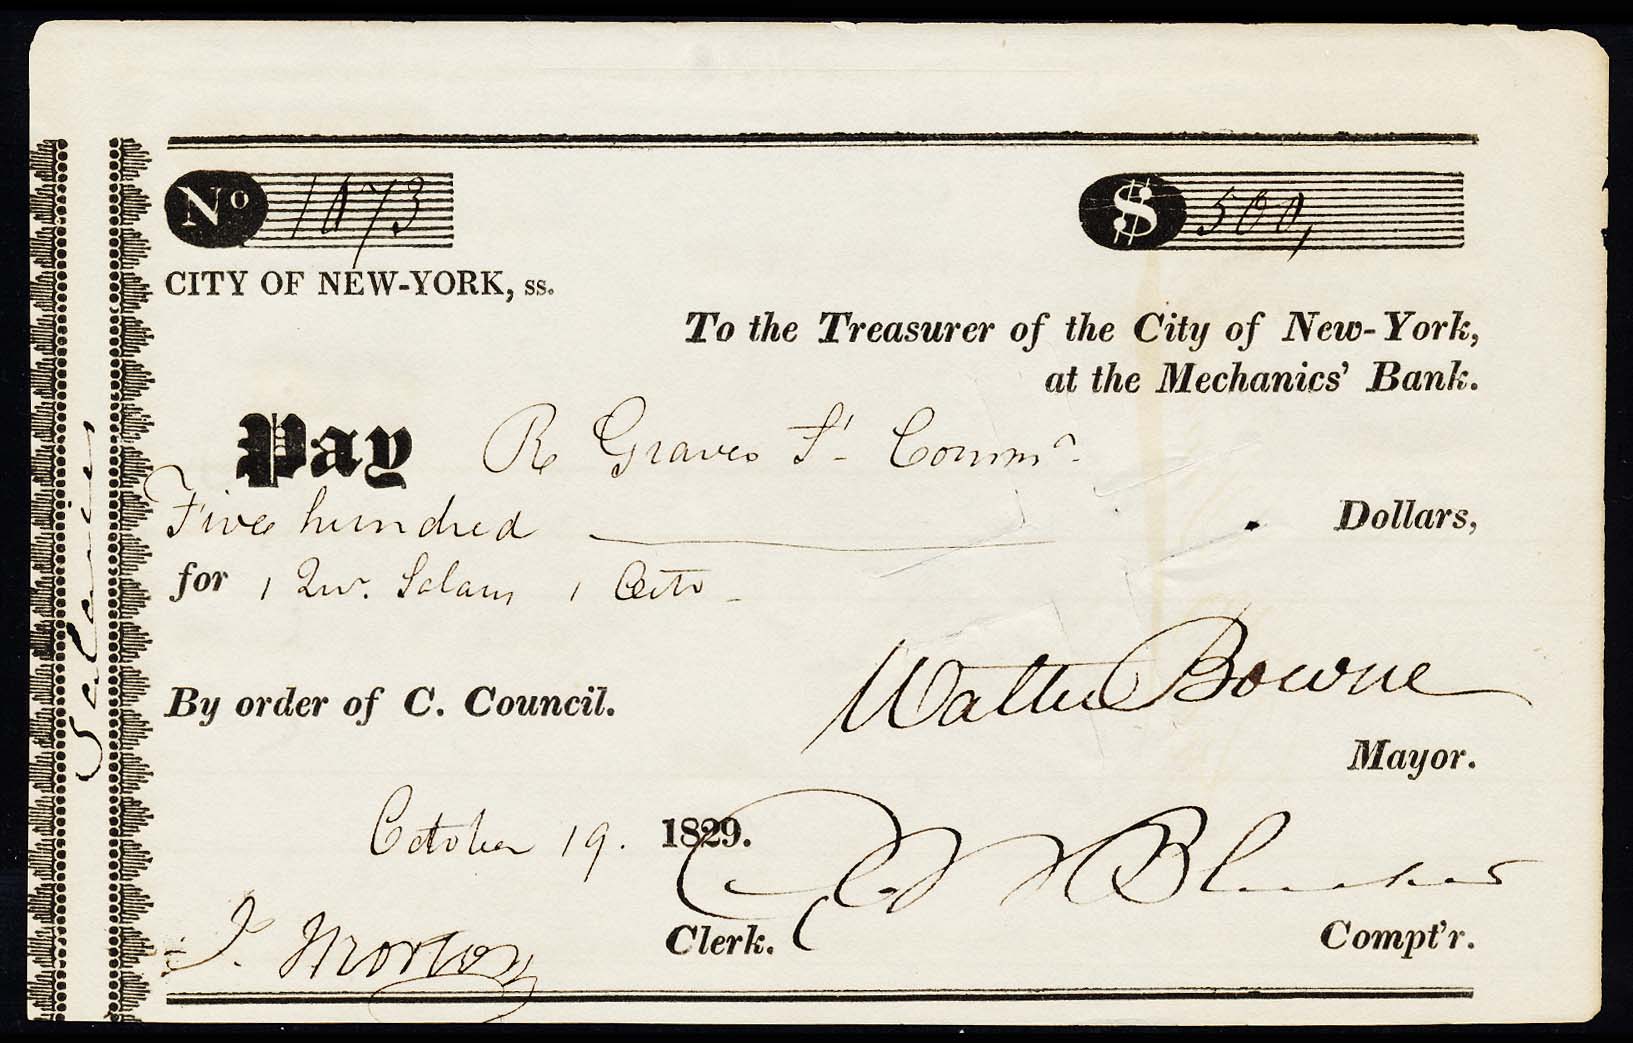 No 1073
$ 500,
CITY OF NEW-YORK, ss.
To the Treasurer of the City of New-York,
at the Mechanics' Bank.
Pay R Graves St Commr.
Five hundred Dollars,
for 1 Qur. Salary 1 Octo
By order of C. Council.
Walter Bowne
Mayor.
October 19. 1829.
J. Morton Clerk.
Compt'r.
Salaries